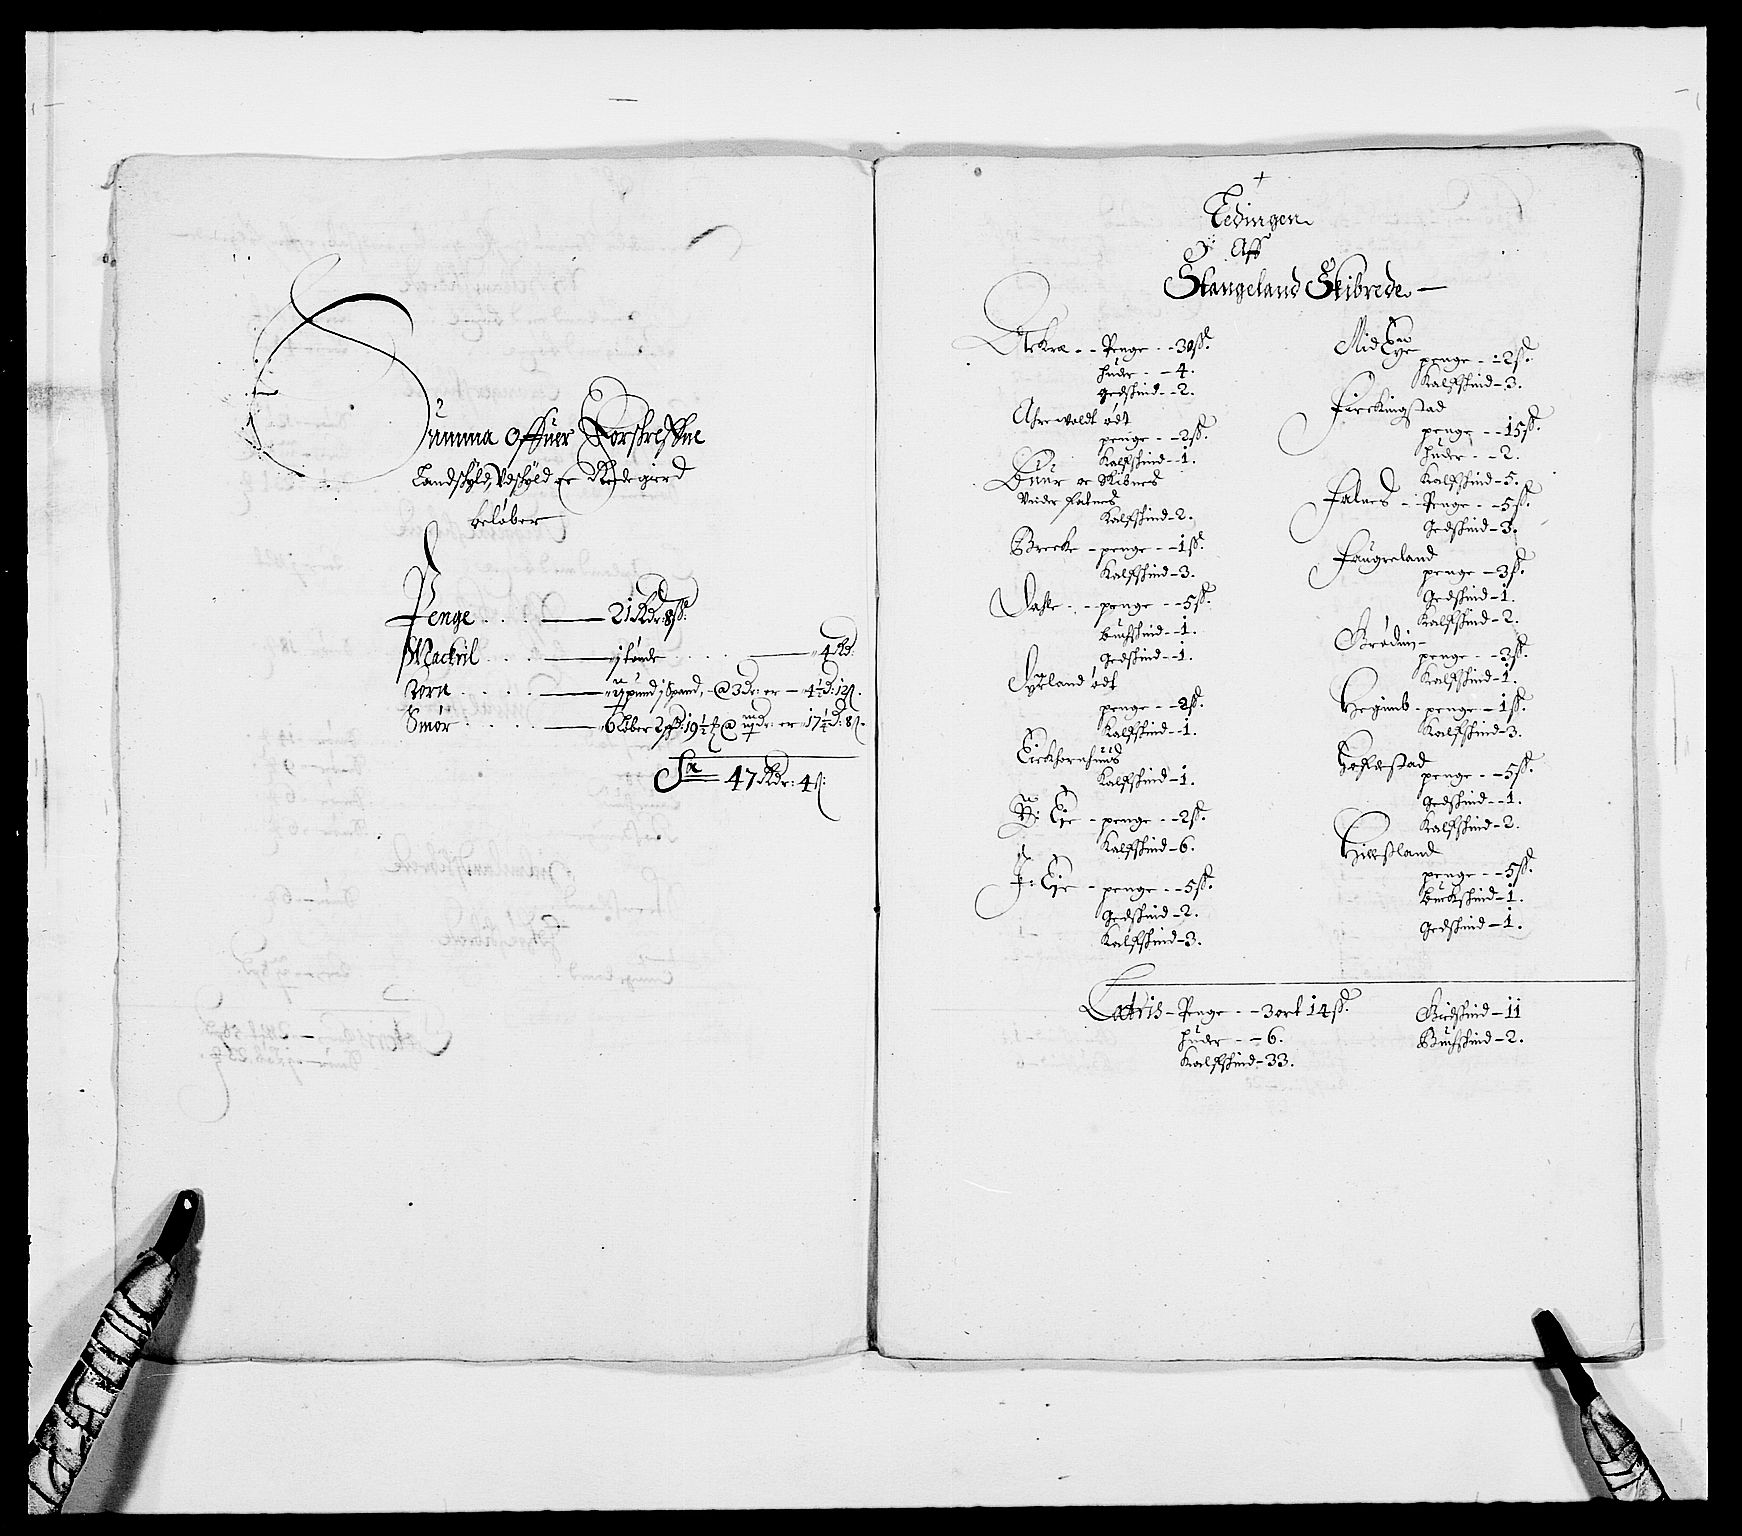 Summa Offuer Forskrefne
Landskyld, Vdskyld oc Redegierd
beløber
Penge . . . . — 21 Rdr: 8 ß.
Mackril . . . — j tønde . . . — 4 Rd.
Korn . . . . — pund j Spand, @ 3 dr: er — 4½ d: 12 ß.
Smør . . . . — 6 løber
Sa 47 Rdr: 4 ß:
+
Ledingen
Aff
Stangeland Skibrede —
Aekra - - Penge - - 30 ß.
huder - - 4.
gedskind - 2.
Ahrewoldt ødt
penge - - 2 ß.
Kalfskind - 1.
Buur oc Skibnes
Vnder Falnes
Kalfskind - 2.
Brecke - penge - - 1 ß.
Kalfskind - 3.
Dahle - - penge - - 5 ß.
buckskind - 1.
gedskind - - 1.
Dyrland ødt
penge - - 2 ß.
Kalfskind - 1.
Eickhornsund
Kalfskind - 1.
Y: Eje - penge - - 2 ß.
Kalfskind - 6.
I: Eje - penge - - 5 ß.
Gedskind - 2.
Kalfskind - 3.
Mid Eye
penge - - 2 ß.
Kalfskind - 3.
Fierkingstad
penge - - 15 ß.
huder - - 2.
Kalfskind - 5.
Falnes - - Penge - - 5 ß.
Gedskind - 3.
Faugreland
penge - 3 ß.
Gedskind - 1.
Kalfskind - 2.
Grødem -
penge - - 3 ß.
Kalfskind - 1.
Heginb - penge - 1 ß.
Kalfskind - 3.
Hoflestad
penge - - 5 ß.
Gedskind - - 1.
Kalfskind - 2.
Hießland
penge - - 5 ß.
buckskind - 1.
Gedskind - 1.
Lateris - Penge - - 3 ort 14 ß.
huder - - 6.
Kalfskind - 33.
Giedskind - 11
Buckskind - 2.